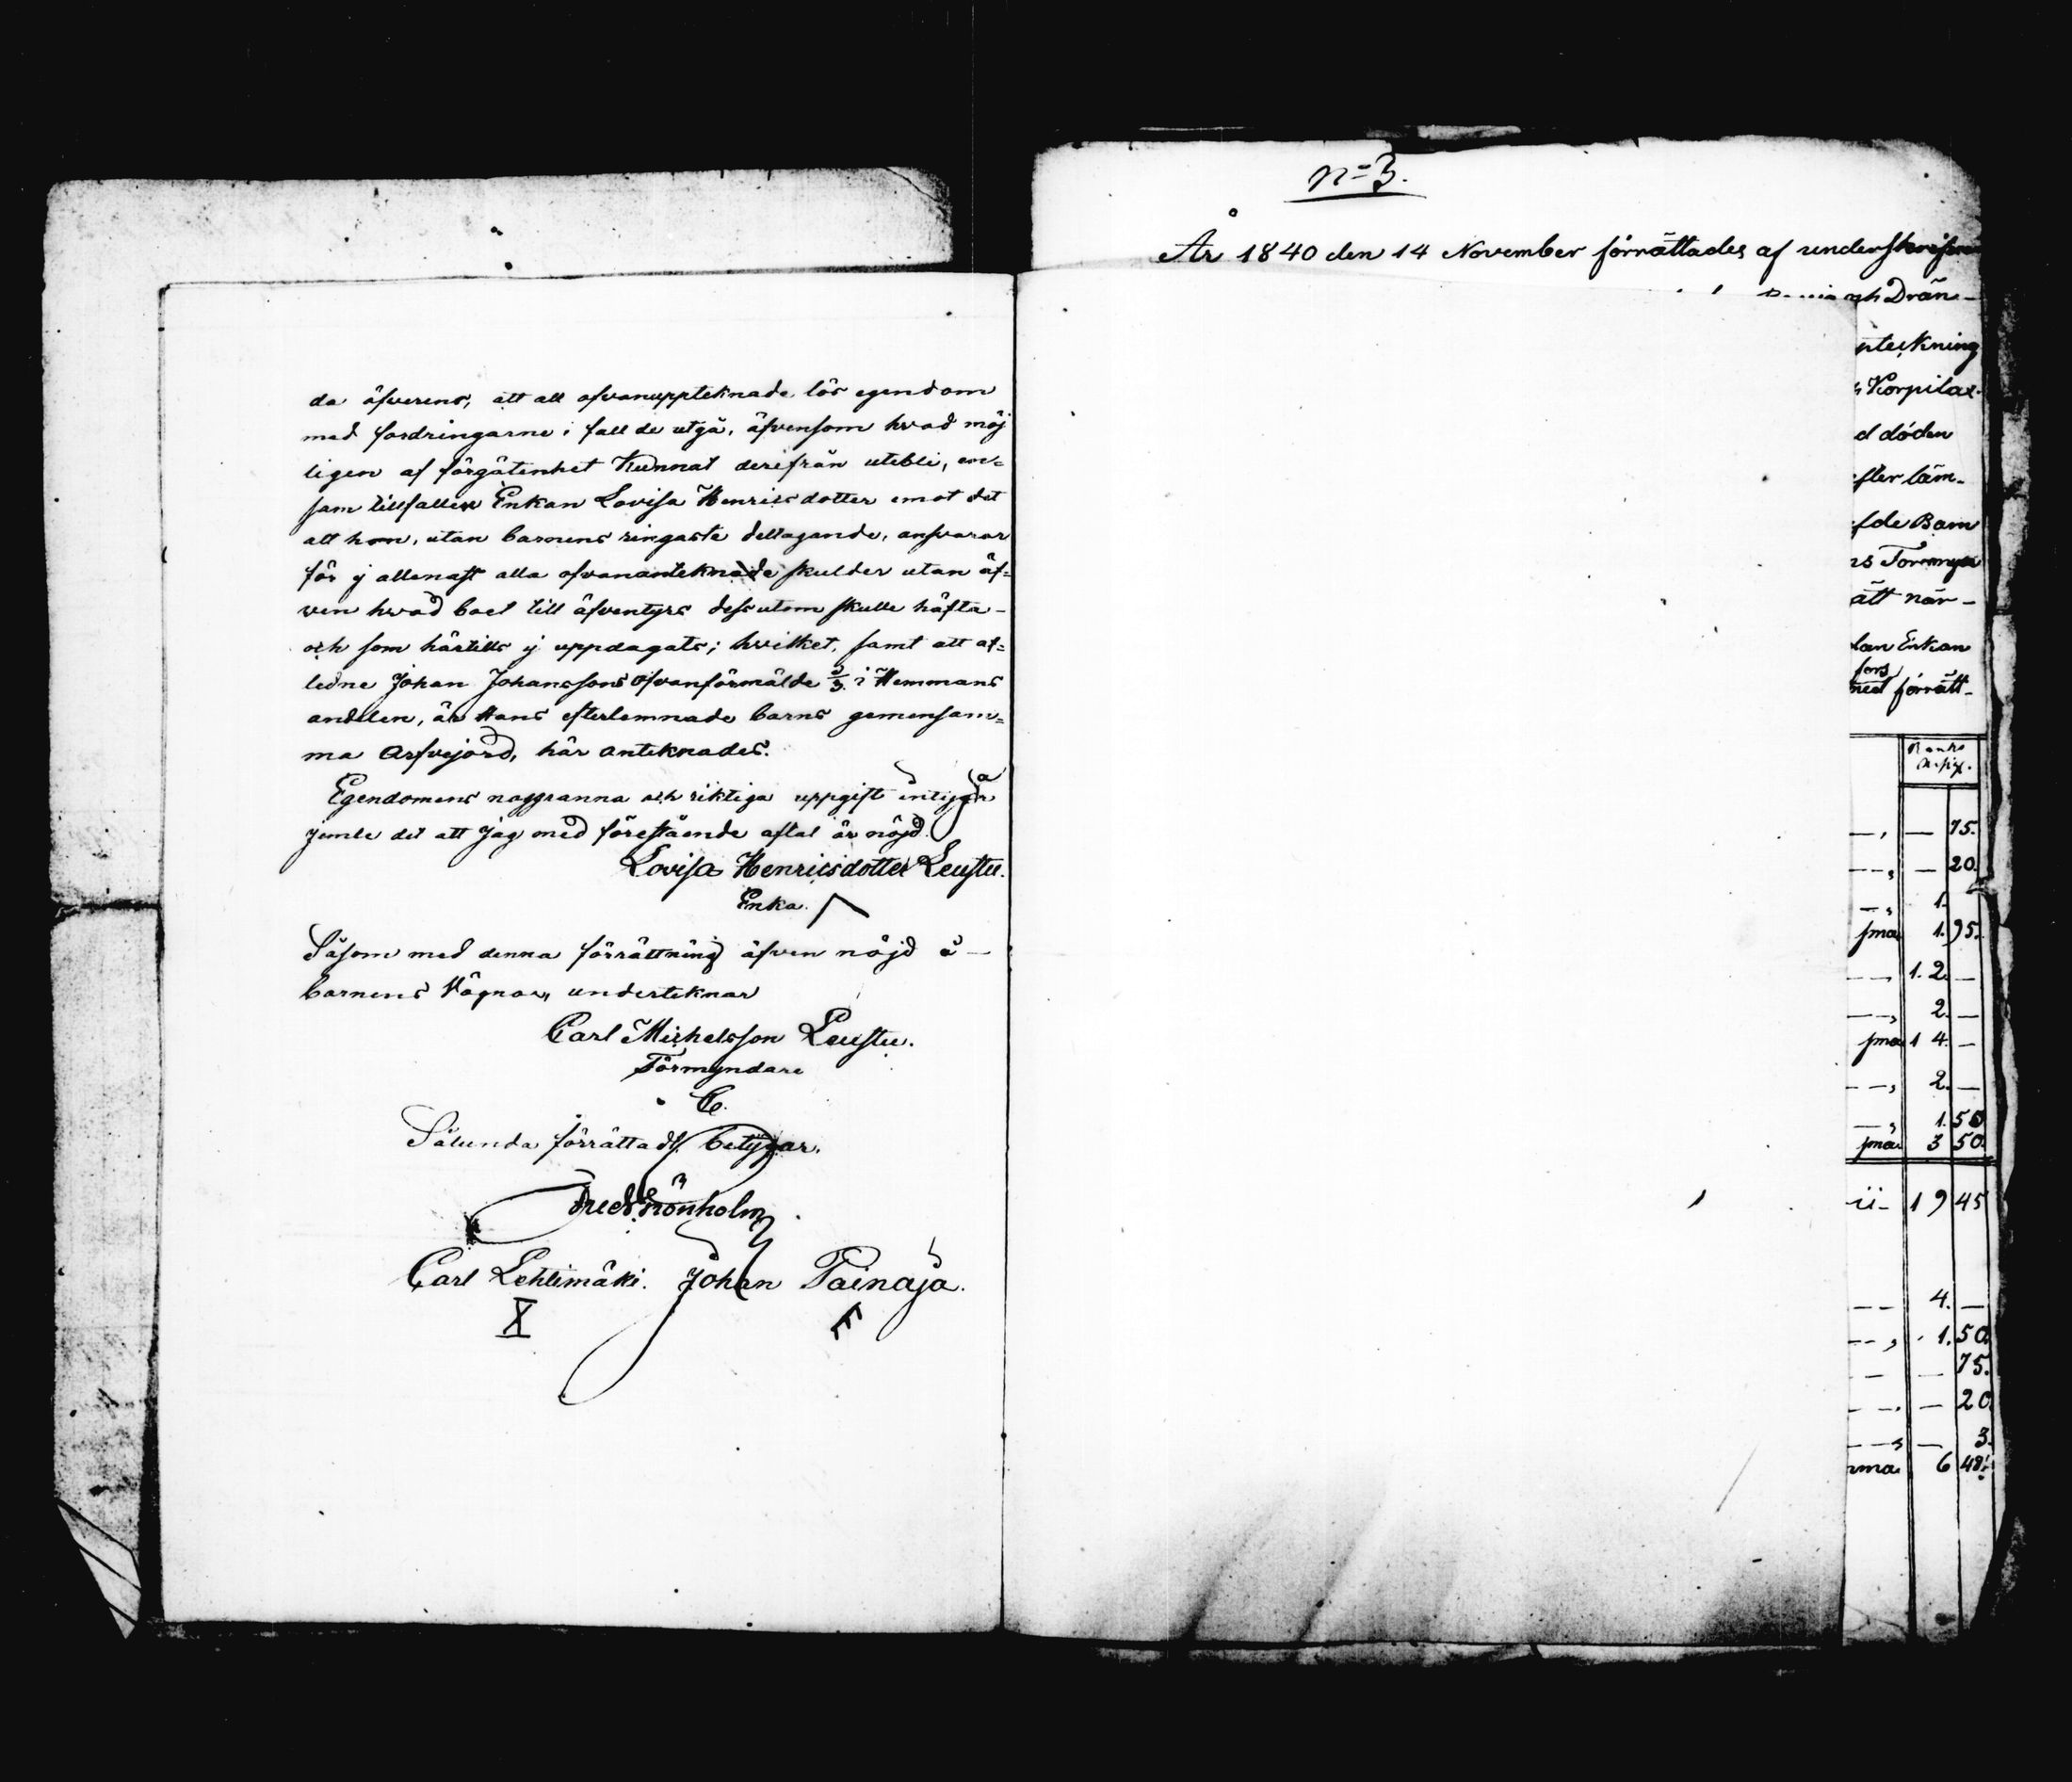 da äfverens, att all ofvanuppteknade lös egendom
med fordringarne i fall de utgå, äfvensom hvad möj
ligen af förgätenhet kunnat derifrån utebli, en=
sam tillfaller Enkan Lovisa Henricsdotter emot det
att hon, utan barnens ringaste deltagande, ansvarar
för ej allenast alla ofvananteknade skulder utan äf=
ven hvad boet till äfventyrs dessutom skulle häfta
och som härtills ej uppdagats; hvilket, samt att af=
ledne Johan Johanssons ofvanförmälde 2/3 i Hemmans
andelen, är Hans efterlemnade barns gemensam=
ma Arfvejord, här anteknades.
Egendomens noggranna och riktiga uppgift intygar
jemte det att jag med förestående aftal är nöjd.
Lovisa Henricsdotter Leustu.
Enka.
Såsom med denna förrättning äfven nöjd å
barnens Vägnar, underteknar
Carl Michelsson Leustu.
Förmyndare
Sålunda förrättadt, betygar.
Carl Lehtimäki. Johan Painaja.
N=3.
År 1840 den 14 November förrättades af underskrifne
och Drän-
nteckning
Korpilax
d döden
efter läm-
fde Barn
ätt när-
lan Enkan
fors
med förrätt-
Banko
75.
20.
1.
sma 1.95.
1. 2. —
2. —
sma 1 4. —
2. —
1. 50
sma 3 50.
19 45
4. —
1. 50.
— 75.
— 20.
— 3.
mma 6 48.